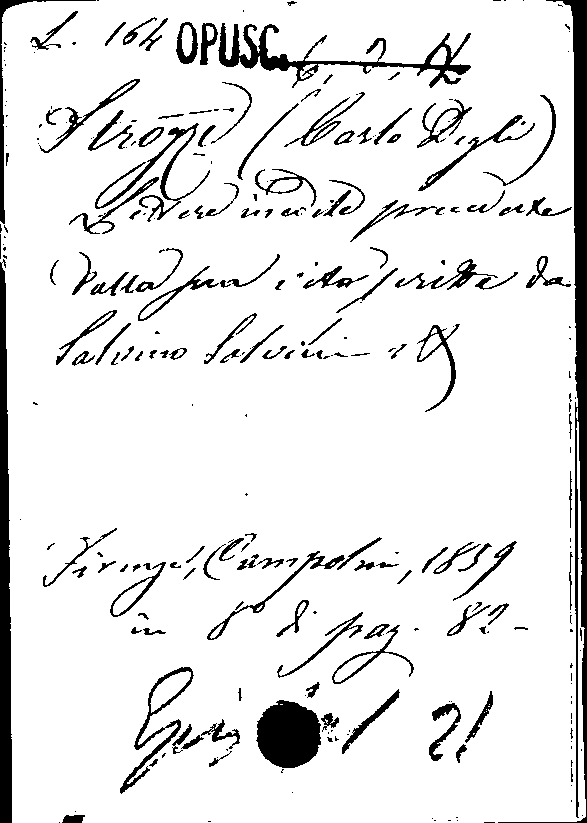 L. 164 OPUSC. 6, 2, 14
Strozzi (Carlo Degli)
Lettere inedite precedute
dalla sua vita scritta da
Salvino Salvini
Firenze, Campolmi, 1859
in 8° di pag. 82 -
21